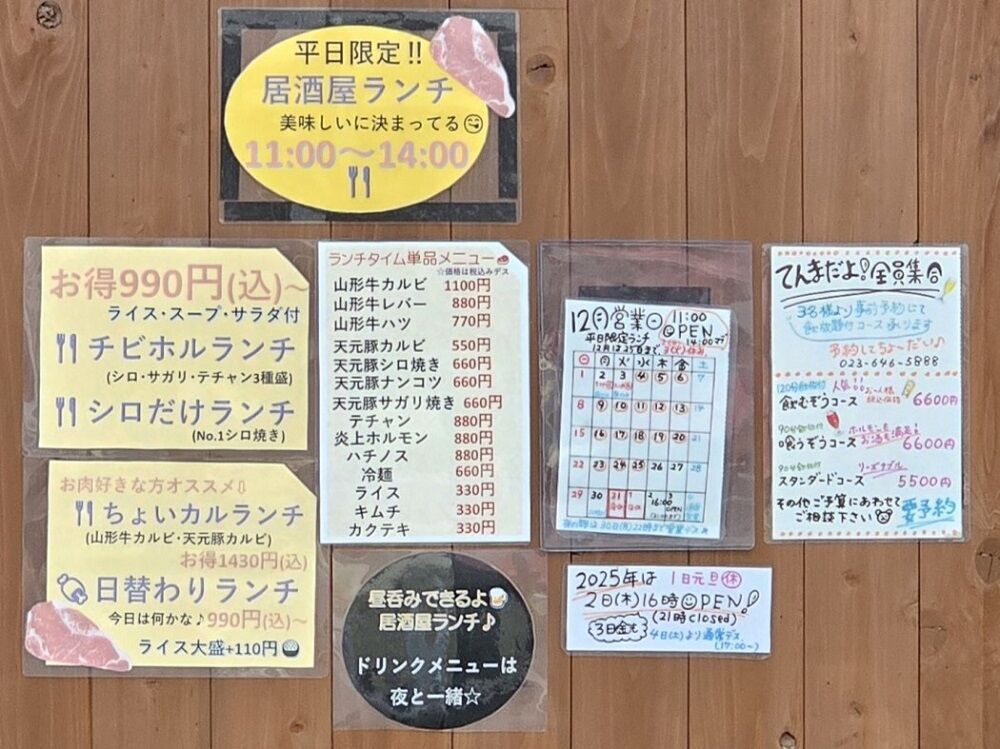 平日限定!!
居酒屋ランチ
美味しいに決まってる😋
11:00～14:00
お得990円(込)～
ライス・スープ・サラダ付
チビホルランチ
(シロ・サガリ・テチャン3種盛)
シロだけランチ
(No.1シロ焼き)
お肉好きな方オススメ⇩
ちょいカルランチ
(山形牛カルビ・天元豚カルビ)
お得1430円(込)
日替わりランチ
今日は何かな♪990円(込)～
ライス大盛+110円
ランチタイム単品メニュー
☆価格は税込みデス
山形牛カルビ 1100円
山形牛レバー 880円
山形牛ハツ 770円
天元豚カルビ 550円
天元豚シロ焼き 660円
天元豚ナンコツ 660円
天元豚サガリ焼き 660円
テチャン 880円
炎上ホルモン 880円
ハチノス 880円
冷麺 660円
ライス 330円
キムチ 330円
カクテキ 330円
昼呑みできるよ🍻
居酒屋ランチ♪
ドリンクメニューは
夜と一緒☆
12月営業日 11:00
OPEN
平日限定ランチ 14:00まで
12月は25日まで
日 月 火 水 木 金 土
1 2 3 4 5 6 7
8 9 10 11 12 13 14
15 16 17 18 19 20 21
22 23 24 25 26 27 28
29 30 31 1 2 3
16:00
OPEN
夜の部は30日(月)22時まで営業デス
2025年は 1日元旦㊡
2日(木)16時OPEN!
(21時closed)
3日金も
4日(土)より通常デス
(17:00～)
てんまだよ!全員集合
3名様より事前予約にて
飲放題付コース承ります
予約してちょ～だい♪
023-646-5888
120分飲放付 人気!! お一人様
税込価格
飲むぞうコース 6600円
90分飲放付 ホルモンも
お酒も満足!
喰うぞうコース 6600円
90分飲放付 リーズナブル
スタンダードコース 5500円
その他ご予算にあわせて
ご相談下さい 要予約